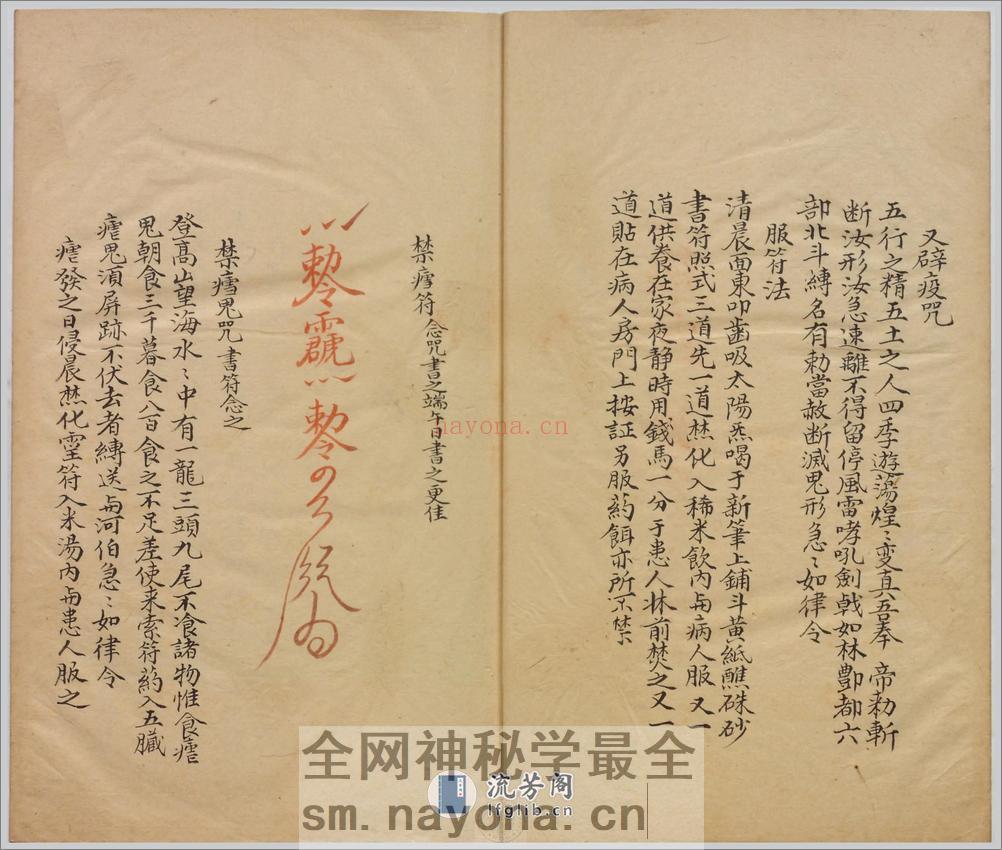 又辟疫咒
五行之精五土之人四季遊蕩煌〻変真吾奉 帝勅斬
断汝形汝急速離不得留停風雷哮吼劍戟如林酆都六
部北斗縛名有勅當赦断滅鬼形急〻如律令
服符法
清晨面東叩齒吸太陽炁喝于新筆上鋪斗黄紙蘸硃砂
書符照式三道先一道焚化入稀米飲内与病人服又一
道供養在家夜静時用錢馬一分于患人牀前焚之又一
道貼在病人房門上按証另服药餌亦所不禁
禁瘧符念咒書之端午日書之更佳
勅令
勅令
禁瘧鬼咒書符念之
登髙山望海水〻中有一龍三頭九尾不飡諸物惟食瘧
鬼朝食三千暮食八百食之不足差使来索符药入五臓
瘧鬼須屏跡不伏去者縛送与河伯急〻如律令
瘧發之日侵晨焚化靈符入米湯内与患人服之
nayona.cn
全网神秘学最全
流芳阁
lfglib.cn
sm.nayona.cn